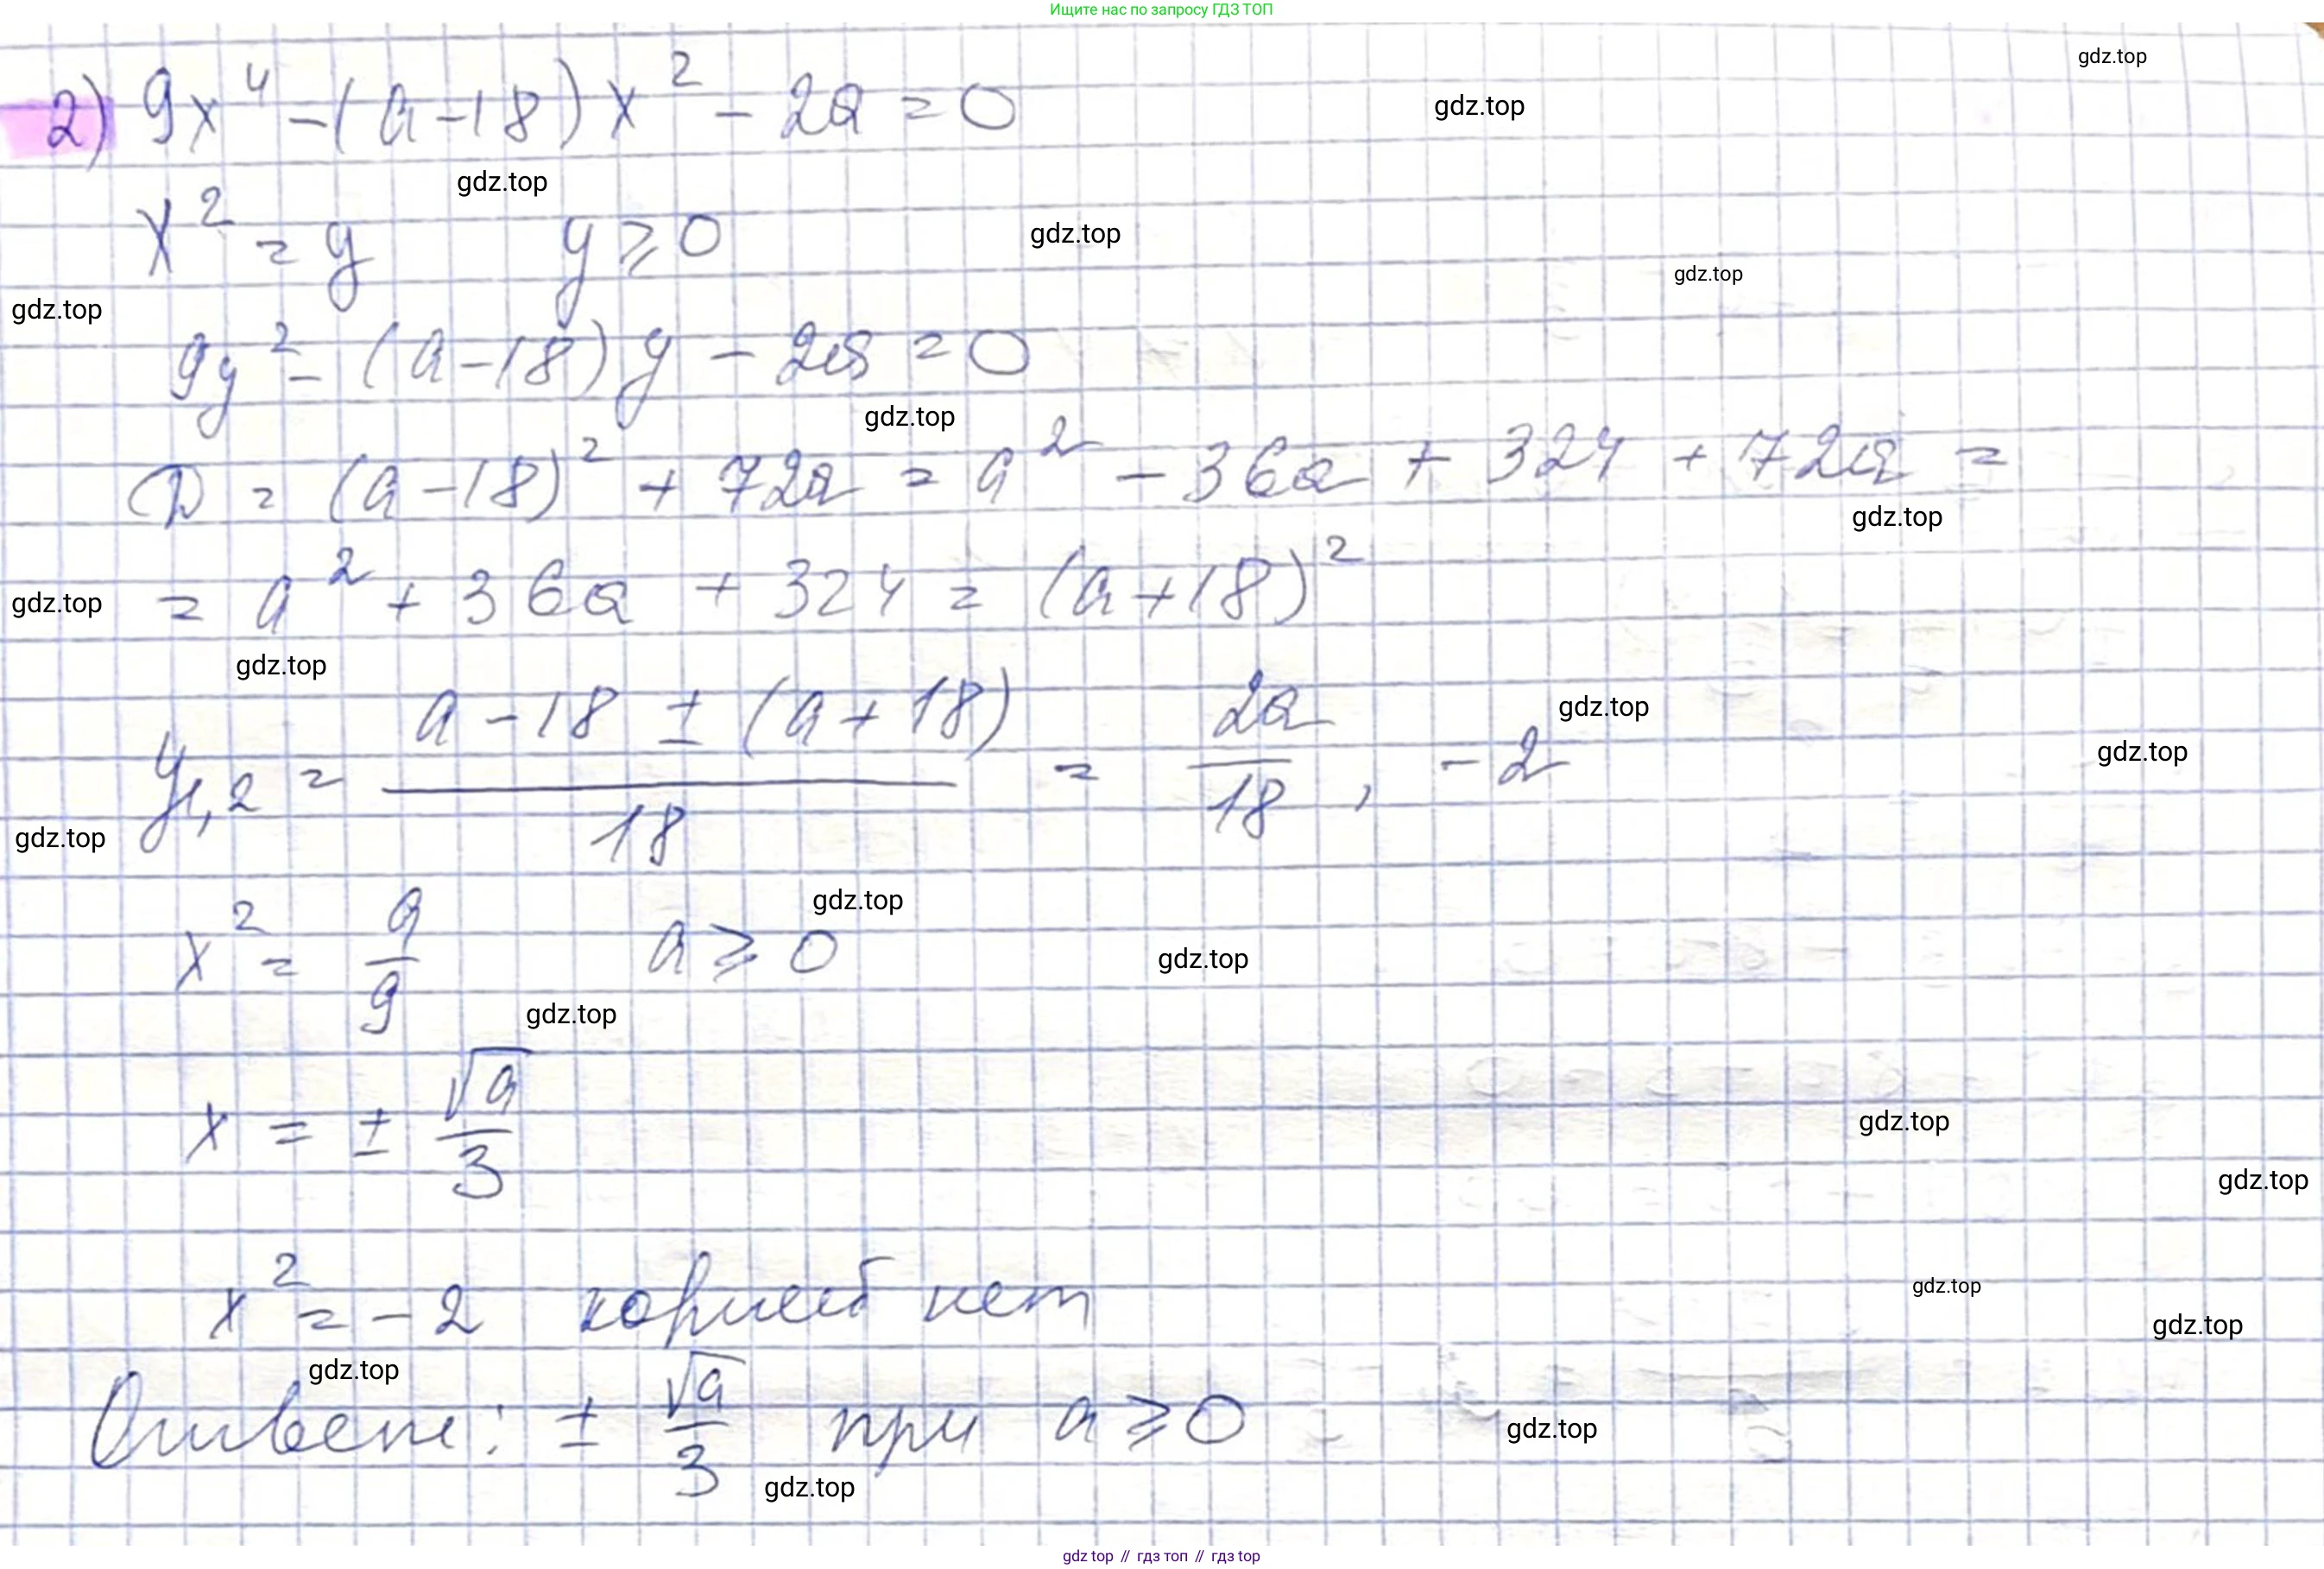 Ищите нас по запросу ГДЗ ТОП
gdz.top
2) 9x⁴ - (a-18)x² - 2a = 0
gdz.top
gdz.top
x² = y y ⩾ 0
gdz.top
gdz.top
gdz.top
9y² - (a-18)y - 2a = 0
gdz.top
D = (a-18)² + 72a = a² - 36a + 324 + 72a =
gdz.top
= a² + 36a + 324 = (a+18)²
gdz.top
gdz.top
y₁,₂ = (a - 18 ± (a + 18))/18 = 2a/18, -2
gdz.top
gdz.top
gdz.top
gdz.top
x² = a/9 a ⩾ 0
gdz.top
gdz.top
x = ± √a/3
gdz.top
gdz.top
x² = -2 корней нет
gdz.top
gdz.top
gdz.top
Ответ: ± √a/3 при a ⩾ 0
gdz.top
gdz.top
gdz top // гдз топ // гдз top